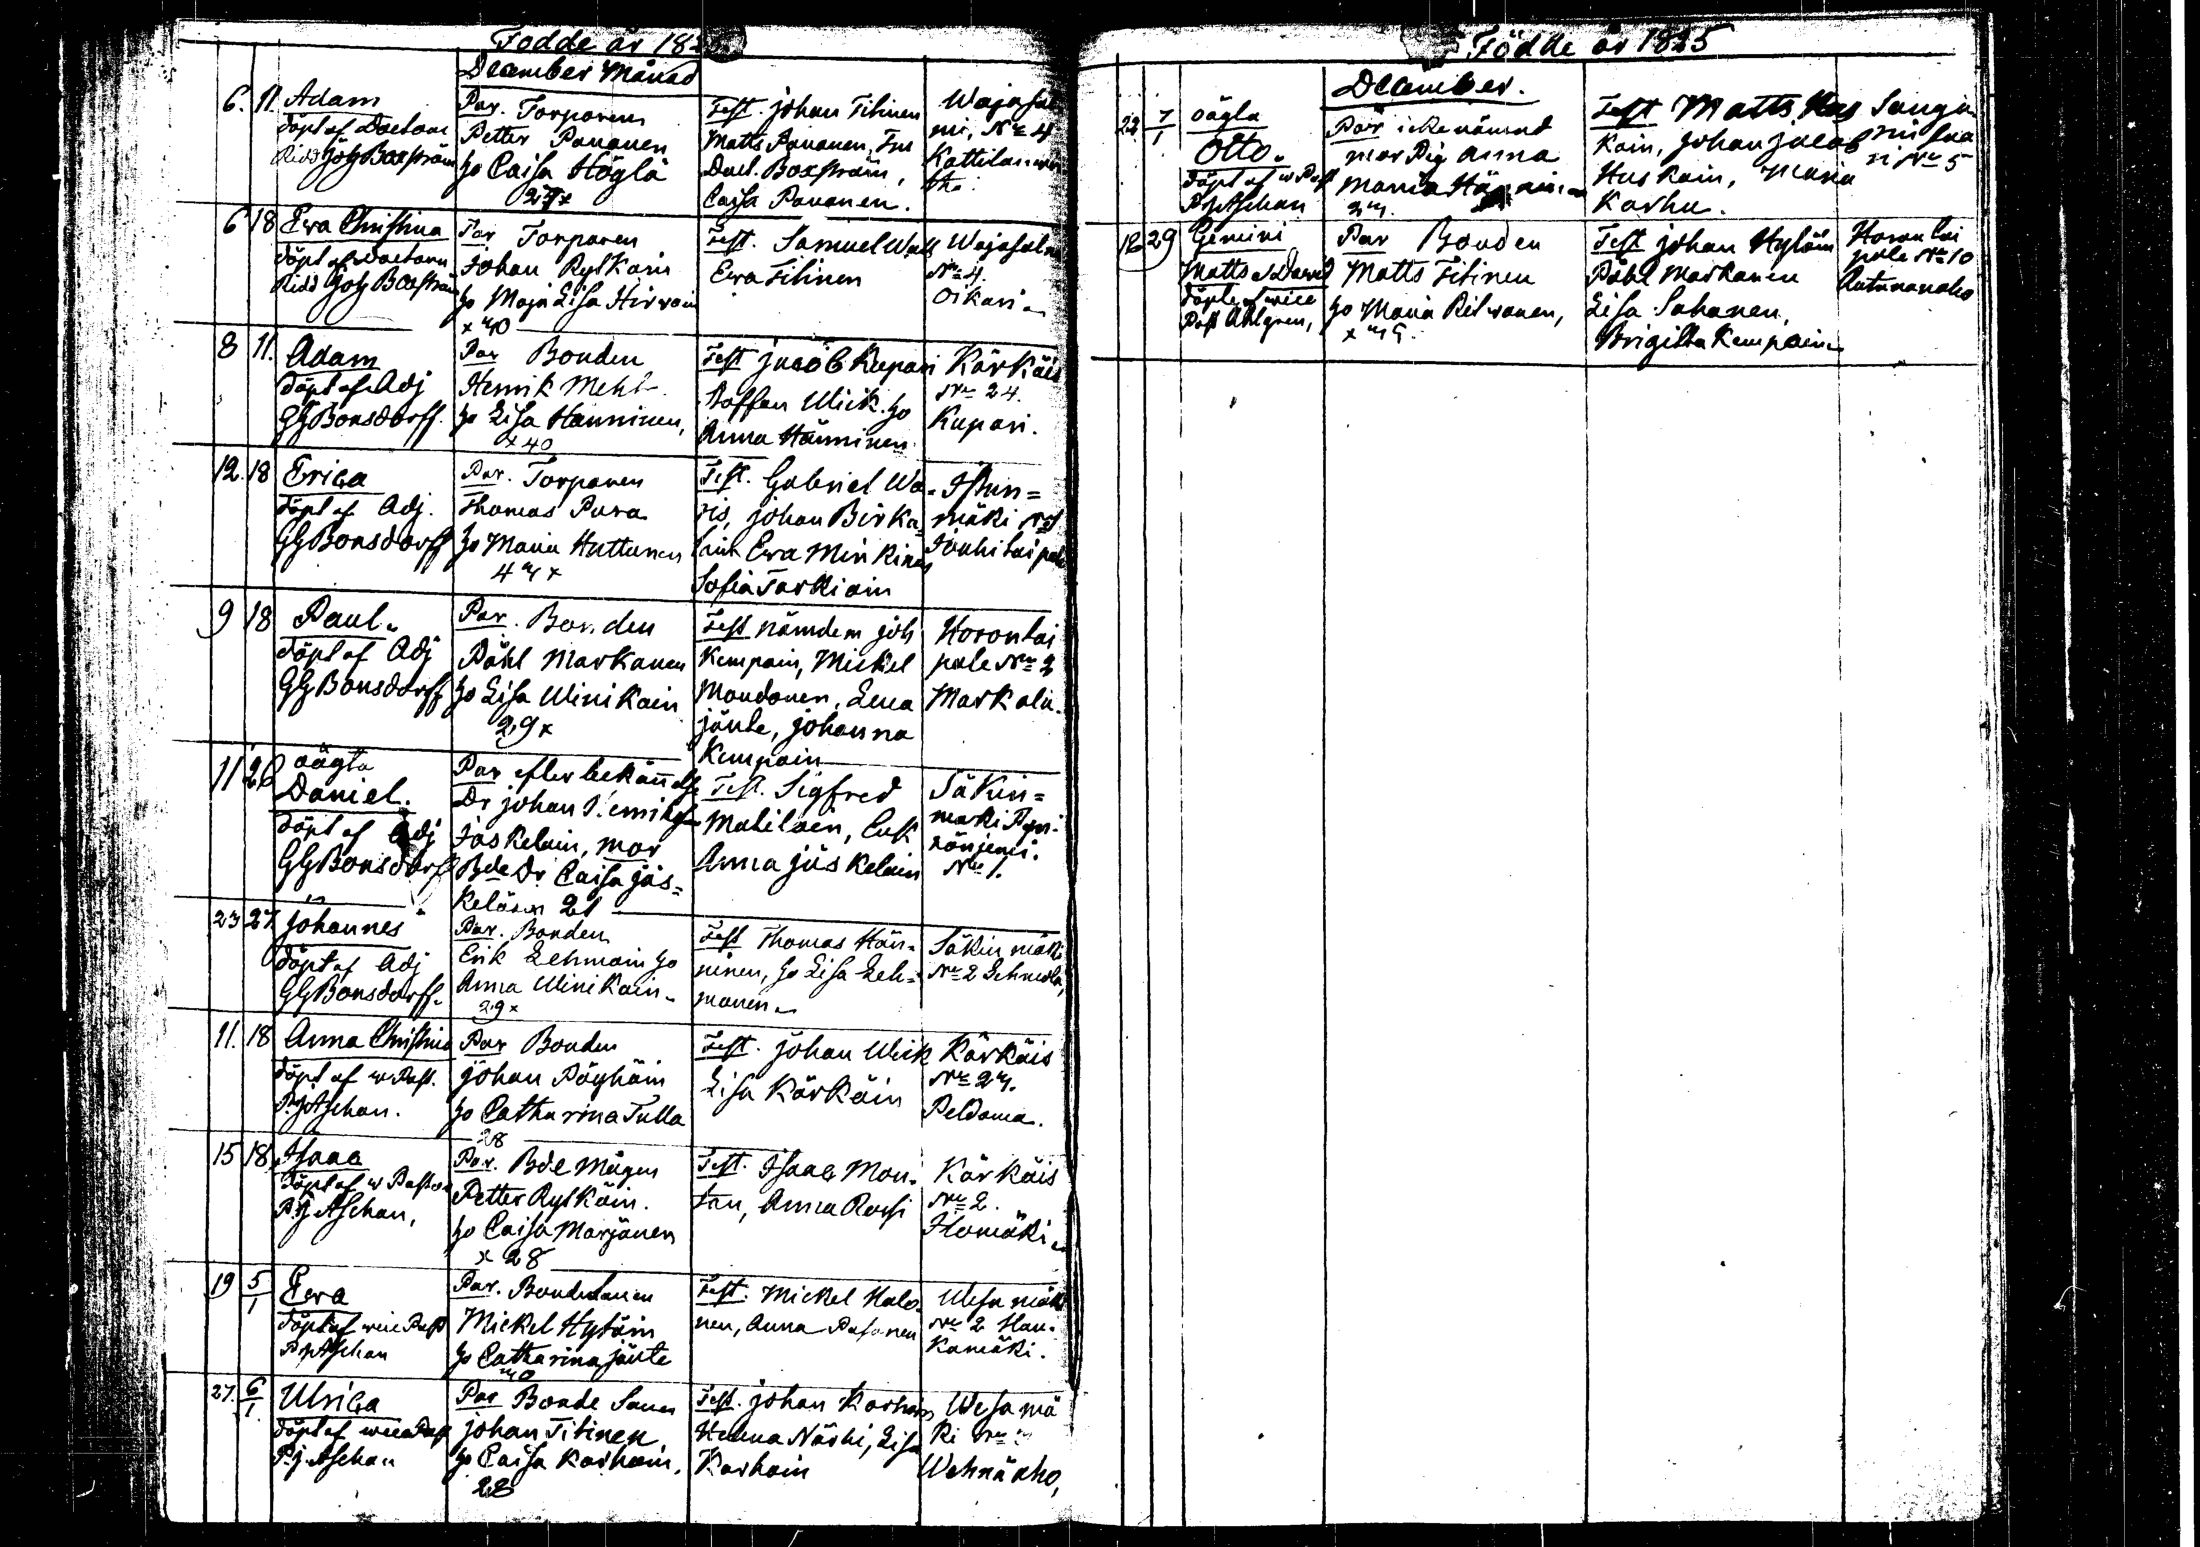 Födde år 18
December Månad
6. 11. Adam
döpt af Doctorn
Ridd Joh Boxström
Par. Torparen
Petter Pananen
ho Caisa Höglä
27 x
Test. Johan Titinen
Matts Pananen, Fru
Doct. Boxström,
Caisa Pananen.
Nr 4
6 18 Ewa Christina
döpt af Doctorn
Ridd Joh Boxström
Par Torparen
Johan Rytkäin
ho Maja Lisa Hirvoin
x 40
Test. Samuel
Ewa Titinen
Wajasalmi
Nr 4.
Oikari
8 11. Adam
döpt af Adj
GGBonsdorff.
Par Bonden
Henrik Meht
ho Lisa Hänninen,
x 40
Test Jacob Kupari
Staffan Wick. ho
Anna Hänninen
Kärkäis
Nr 24.
Kupari.
12. 18 Erica
döpt af Adj.
GGBonsdorff
Par. Torparen
Thomas Pura
ho Maria Huttunen
Test. Gabriel Wa-
ris, Johan Birka-
lain Ewa Minkinen
Sofia Tarkiain
Istun=
mäki
9 18 Paul.
döpt af Adj
GGBonsdorff
Par. Bonden
Påhl Markanen
ho Lisa Winikain
29 x
Test nämdem Joh
Kempain, Mickel
Mondonen, Lena
Jänte, Johanna
Kempain
Horontai
pale Nr 2
Markala.
11 26 oägta
Daniel.
döpt af Adj
GGBonsdorff
Par efter bekännelse
Dr Johan Henrikss
Jäskelain, mor
Bde Dr Caisa Jäs=
keläin 21
Test. Sigfred
Matilain, Enk
Anna Jäskelain
Säkin=
mäki
Nr 1.
23 27 Johannes
döpt af Adj
GGBonsdorff.
Par. Bonden
Erik Lehmain ho
Anna Winikain
29 x
Test Thomas Hän-
ninen, ho Lisa Leh=
monen
Säkin mäki
Nr 2 Lehmola,
11. 18 Anna Christina
döpt af w Past.
P.J Aschan.
Par Bonden
Johan Pöyhäin
ho Catharina Tulla
28
Test. Johan Wick
Lisa Kärkäin
Kärkäis
Peldoma.
15 18 Isaac
döpt af w Pastor
P.J Aschan,
Par. Bde Mågen
Petter Rytkäin.
ho Caisa Marjanen
x 28
Test. Isaac Mon-
ten, Anna Rossi
Kärkäis
Nr 2.
Ilomäki
19 5/1 Ewa
döpt af vice Past
PJ Aschan
Par. Bondesonen
Mickel Hytäin
ho Catharina Jänte
40
Test. Mickel Halo-
nen, Anna Pasanen
Wesa mäki
Nr 2 Hau-
kamäki.
27. 6/1. Ulrica
döpt af vice Past
P.J. Aschan
Par Bonde Sonen
Johan Titinen
ho Caisa Karhain.
28
Test. Johan Karhain
Helena Närhi, Lisa
Karhain
Wesa mä
ki Nr
Wehnä aho,
Födde år 1825
December.
22 7/1 oägta
Otto.
döpt af w Past
PJ Aschan
Par icke nämnd
mor Pig Anna
Maria
Test Matts Hus
kain, Johan Jacob
Huskain, Maria
Karhu.
Nr 5
18 29 Gemini
Matts o David
döpte af vice
Past Ahlgren,
Par Bonden
Matts Titinen
ho Maria Ritwanen,
Test Johan Hytöin
Påhl Markanen
Lisa Sahanen,
Brigitta Kempain
Horontai
pale Nr 10
Autunenaho